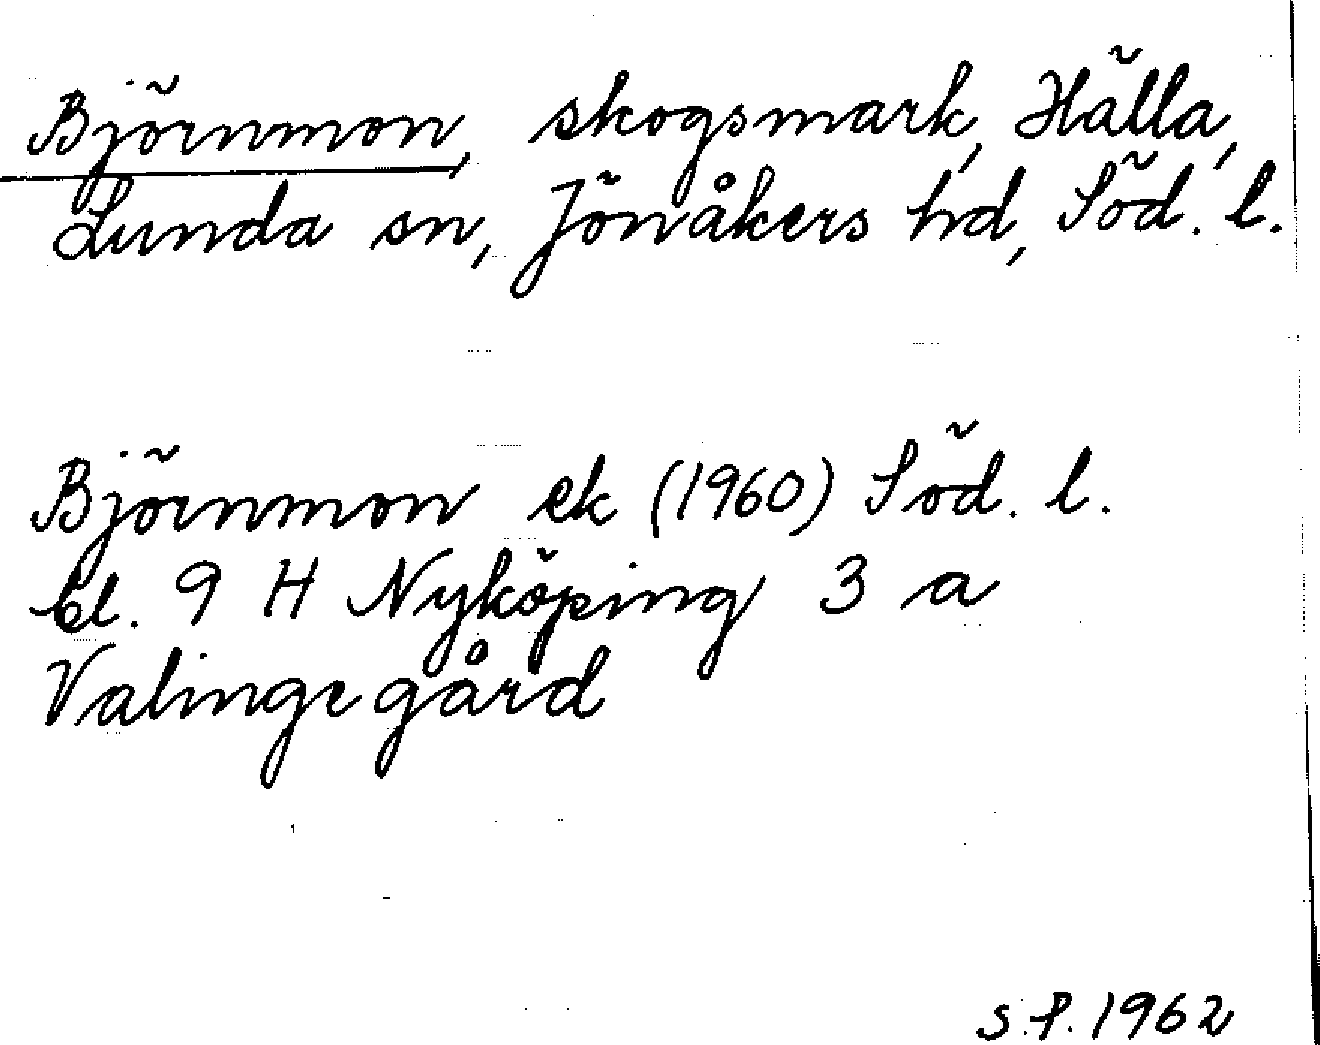 Björnmon, skogsmark, Hälla,
Lunda sn, Jönåkers hd, Söd. l.
Björnmon ek (1960) Söd. l.
bl. 9 H Nyköping 3 a
Valinge gård
S.P. 1962